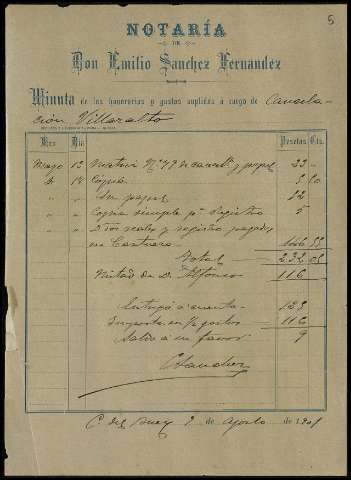 5
NOTARÍA
DE
Don Emilio Sanchez Fernandez
Minuta de los honorarios y gastos suplidos á cargo de Cancela-
ción Villaralto
Mes Día Pesetas Cts.
Mayo 13 Matriz Nº 77 de cancelⁿ y papel 33 -
" 14 Copia 50
" " Su papel 12
" " Copia simple pª Registro 5
" " Dros reales y registro pagados
en Cantuera 146 55
Total 232 05
Mitad de D. Alfonso 116
Entregó á cuenta 125
Importa su ½ gastos 116
Saldo á su favor 9
ESanchez
C. del Buey 9 de Agosto de 1901